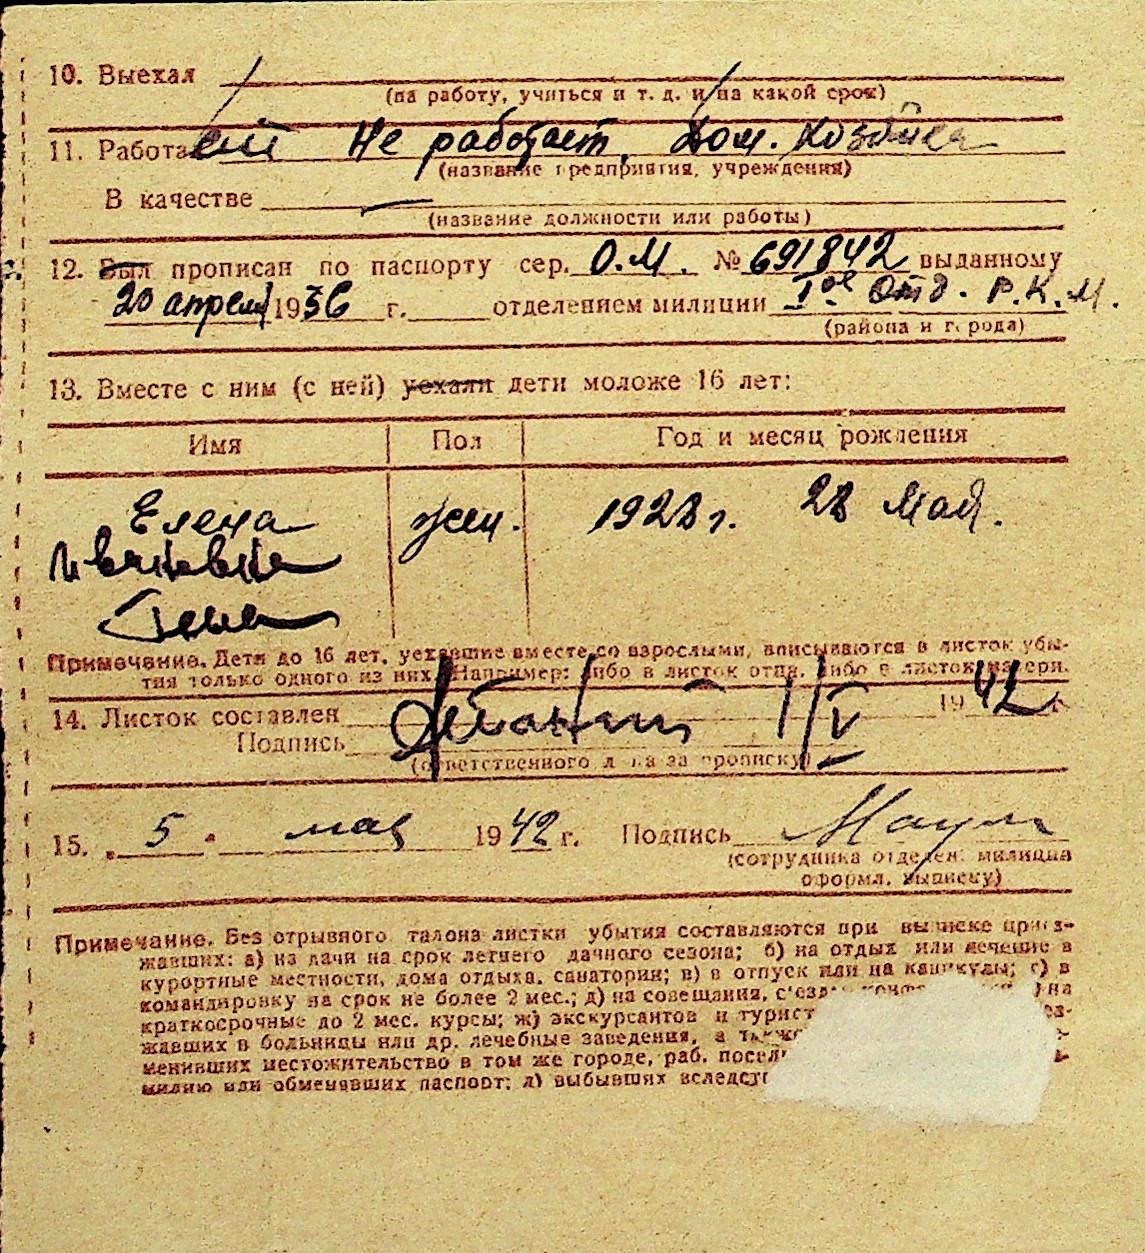 10. Выехал
(на работу, учиться и т. д. и на какой срок)
11. Работает Не работает, дом. хозяйка
(название предприятия, учреждения)
В качестве —
(название должности или работы)
12. Был прописан по паспорту сер. О.М. № 691842 выданному
20 апреля 1936 г. отделением милиции 1ое Отд. Р.К.М.
(района и города)
13. Вместе с ним (с ней) уехали дети моложе 16 лет:
Имя Пол Год и месяц рождения
Елена жен. 1928 г. 28 Май.
Ивановна
Примечание. Дети до 16 лет, уехавшие вместе со взрослыми, вписываются в листок убы-
тия только одного из них. Например: либо в листок отца, либо в листок матери.
14. Листок составлен 1/V 1942 г.
Подпись
(ответственного л-ца за прописку)
15. „ 5 " мая 1942 г. Подпись
(сотрудника отделен. милиции
оформл. выписку)
Примечание. Без отрывного талона листки убытия составляются при выписке приез-
жавших: а) из дачи на срок летнего дачного сезона; б) на отдых или лечение в
курортные местности, дома отдыха, санатории; в) в отпуск или на каникулы; г) в
командировку на срок не более 2 мес.; д) на совещания, с'езды на
краткосрочные до 2 мес. курсы; ж) экскурсантов и турист
жавших в больницы или др. лечебные заведения, а также
менивших местожительство в том же городе, раб. посел
милию или обменявших паспорт; л) выбывших вследст